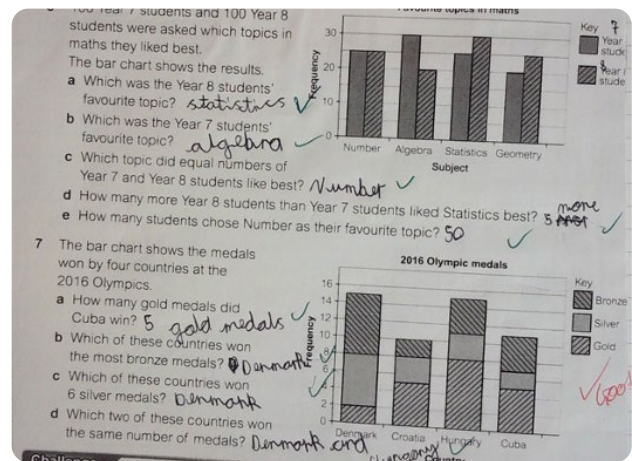 Year 7 students and 100 Year 8
students were asked which topics in
maths they liked best.
The bar chart shows the results.
a Which was the Year 8 students'
favourite topic? statistics
b Which was the Year 7 students'
favourite topic? algebra
c Which topic did equal numbers of
Year 7 and Year 8 students like best? Number
d How many more Year 8 students than Year 7 students liked Statistics best? 5 more
e How many students chose Number as their favourite topic? 50
Favourite topics in maths
30
20
10
0
Frequency
Number Algebra Statistics Geometry
Subject
Key 7
Year
stude
Year
stude
7 The bar chart shows the medals
won by four countries at the
2016 Olympics.
a How many gold medals did
Cuba win? 5 gold medals
b Which of these countries won
the most bronze medals? Denmark
c Which of these countries won
6 silver medals? Denmark
d Which two of these countries won
the same number of medals? Denmark and
Hungary
2016 Olympic medals
16
14
12
10
8
6
4
2
0
Frequency
Denmark Croatia Hungary Cuba
Key
Bronze
Silver
Gold
Good